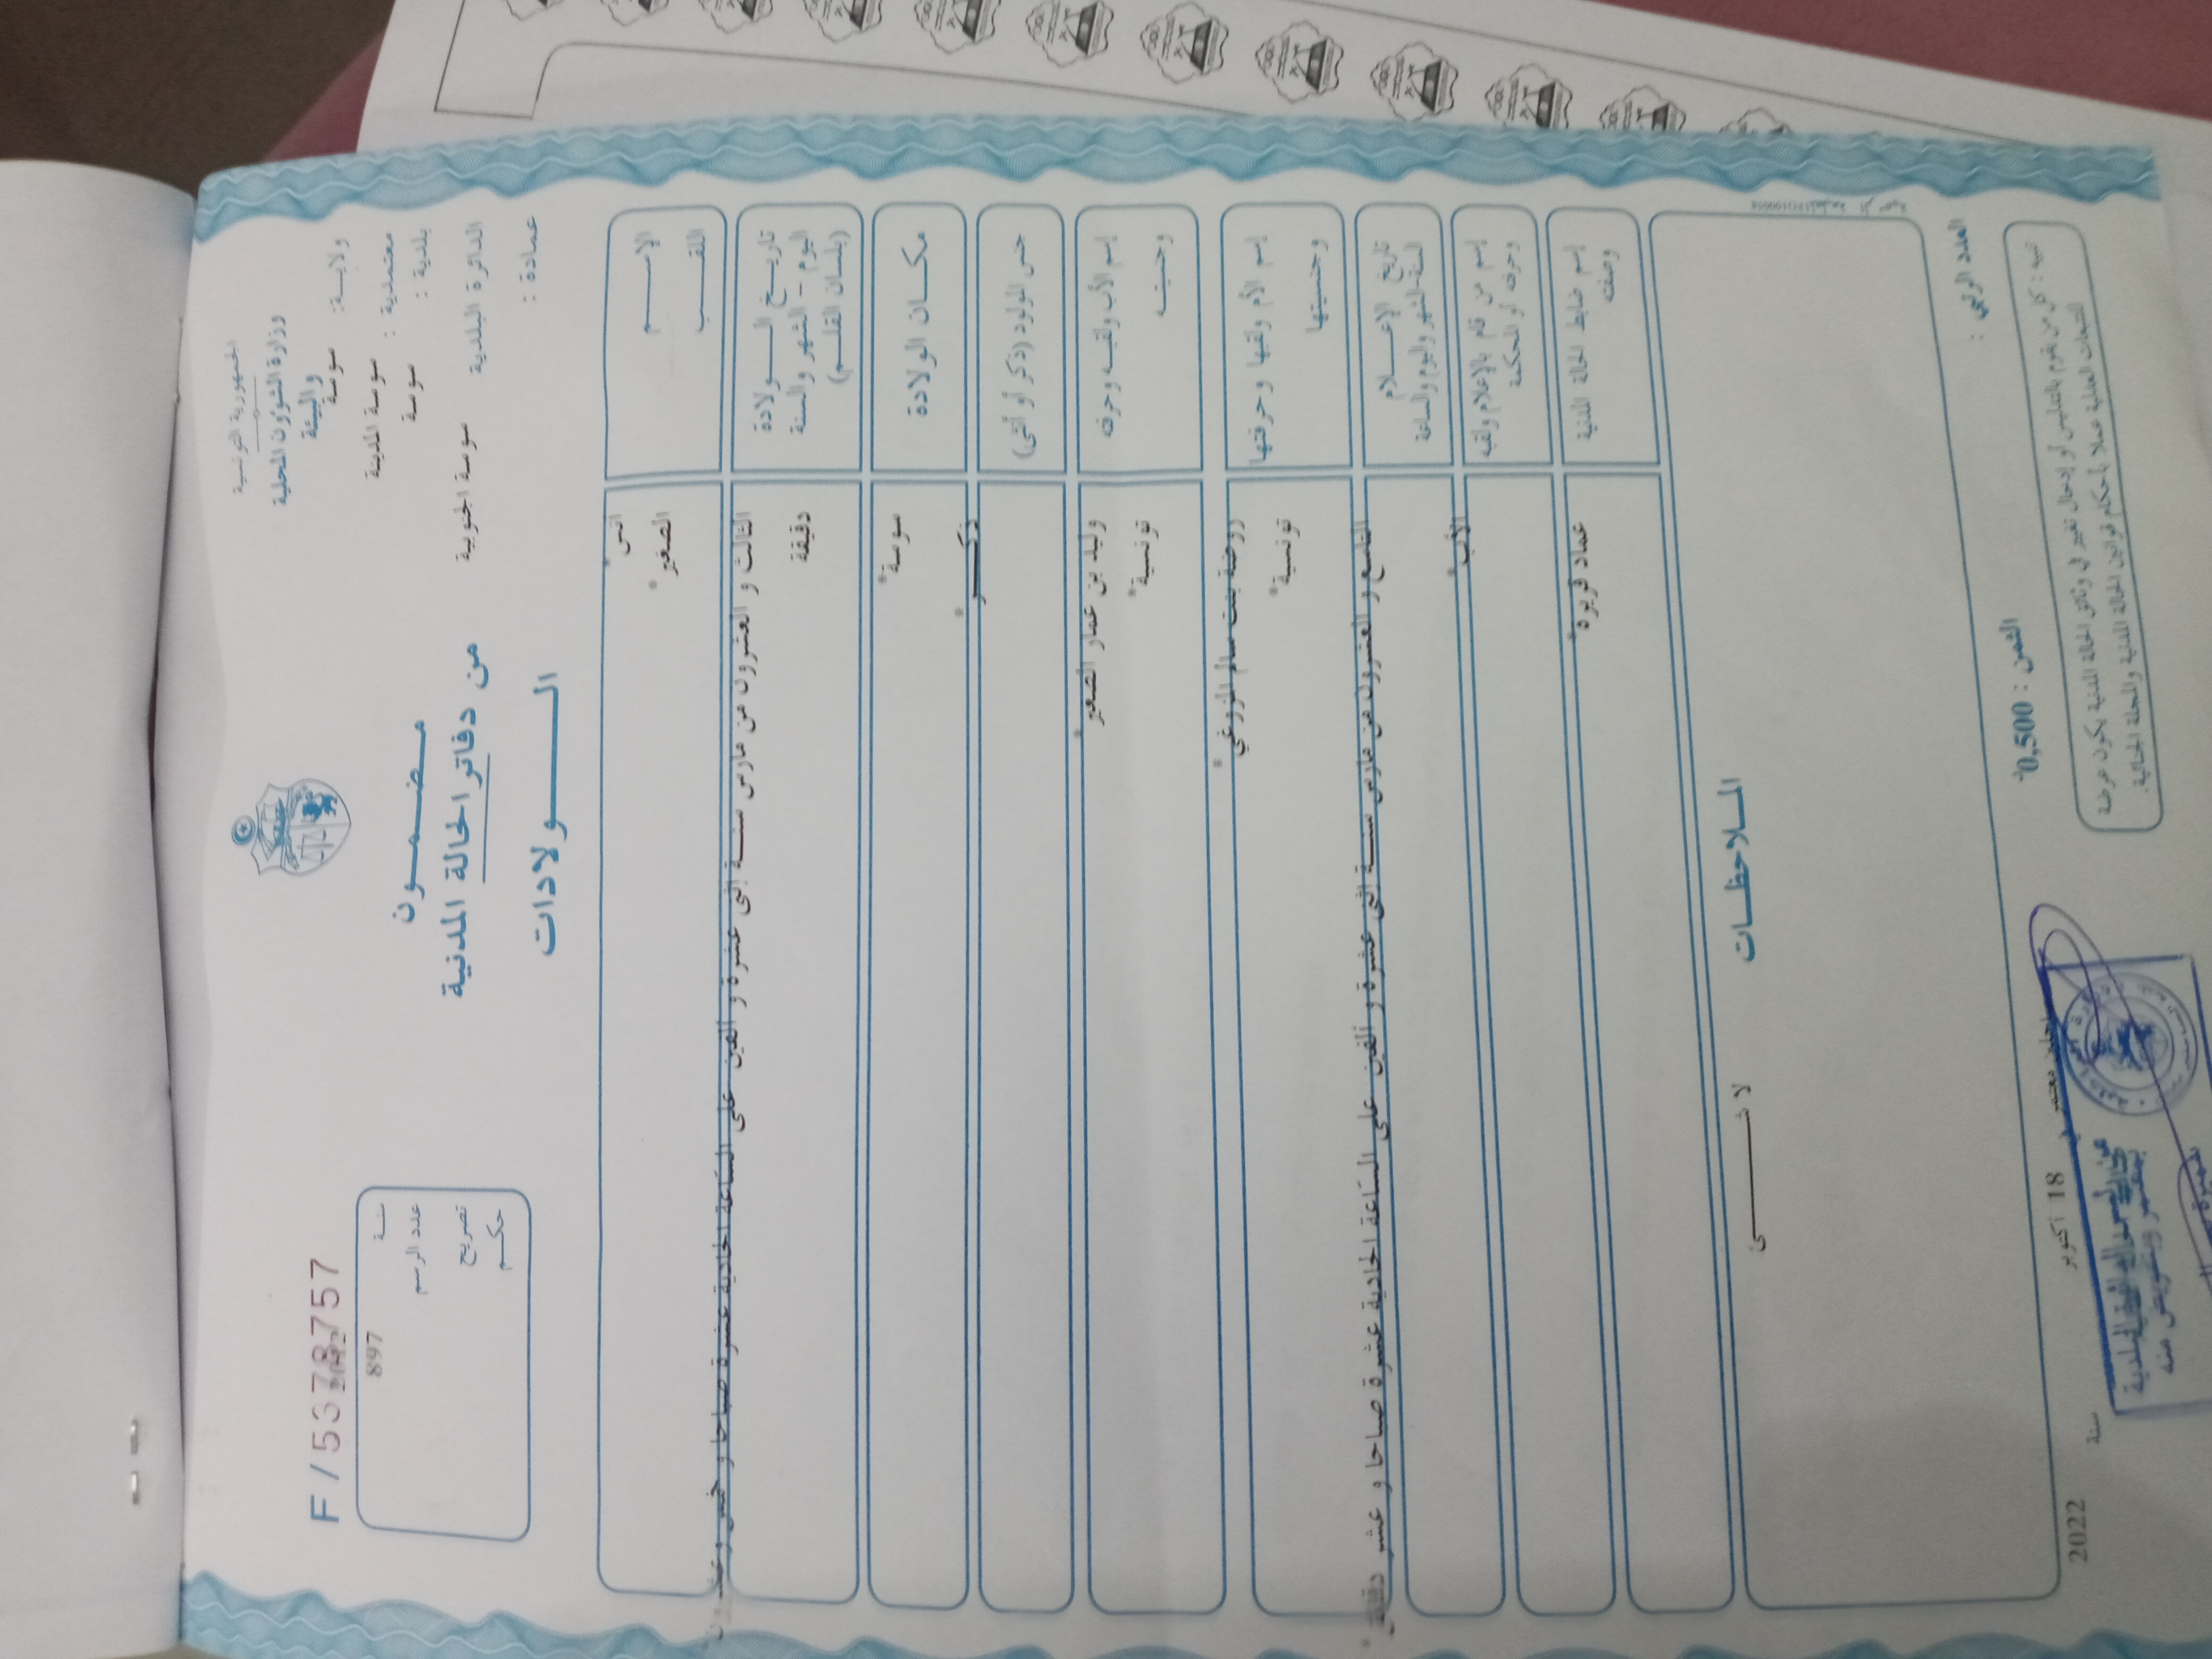 الجمهورية التونسية
وزارة الشؤون المحلية
والبيئة
ولايـة: سوسة
معتمدية : سوسة المدينة
بلدية : سوسة
الدائرة البلدية سوسة الجنوبية
عمادة :
مـضـمـون
من دفاتر الحالة المدنية
الـولادات
F / 53787 57
سنـة
897
عدد الرسم
تصريح
حكـم
الإسـم
انس *
اللقـب
الصغير *
تاريـخ الـولادة
اليوم - الشهر والسنة
(بلسان القلـم)
الثالث و العشرون من مارس سنـة إثنى عشرة و ألفين على الساعة الحادية عشرة صباحا و خمس وعشرون
دقيقة
مكـان الولادة
سوسة *
جنس المولود (ذكر أو أنثى)
ذكـر *
إسم الأب ولقبـه وحرفته
وجنسيتـه
وليد بن عمار الصغير *
تونسية *
إسم الأم ولقبها وحرفتها
وجنسيتها
روضة بنت سالم المزوغي *
تونسية *
تاريخ الإعـلام
السنة-الشهر واليوم والساعة
التاسع و العشرون من مارس سنـة إثنى عشرة و ألفين على الساعة الحادية عشرة صباحا و عشر دقائق *
إسم من قام بالإعلام ولقبه
وحرفته أو المحكمة
الأب *
إسم ضابط الحالة المدنية
وصفته
عماد قريرة *
المـلاحظـات
لا شـئ
العدد الرتبي :
الثمن : 0,500
18 أكتوبر
سنة 2022
تنبيه : كل من يقوم بالتدليس أو إدخال تغيير في وثائق الحالة المدنية يكون عرضة
للتتبعات العدلية عملا بأحكام قوانين الحالة المدنية والمجلة الجنائية.
وبتفويض منه